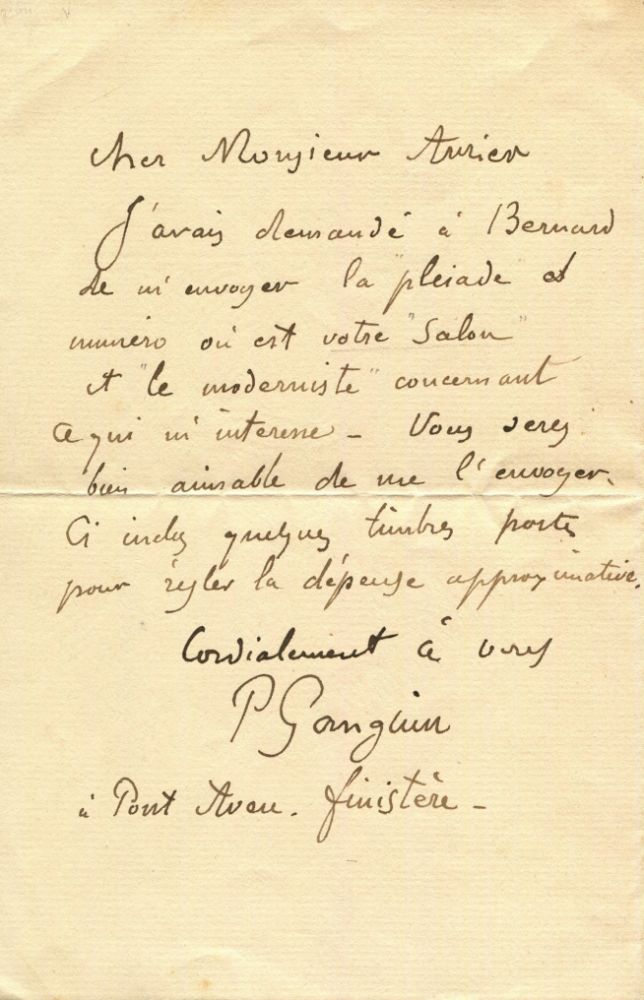 Cher Monsieur Aurier
J'avais demandé à Bernard
de m'envoyer la "pleiade" et
numéro où est votre "Salon"
et "le moderniste" concernant
ce qui m'interesse - Vous serez
bien aimable de me l'envoyer.
Ci inclus quelques timbres poste
pour régler la dépense approximative.
Cordialement à vous
P Gauguin
à Pont Aven. finistère -